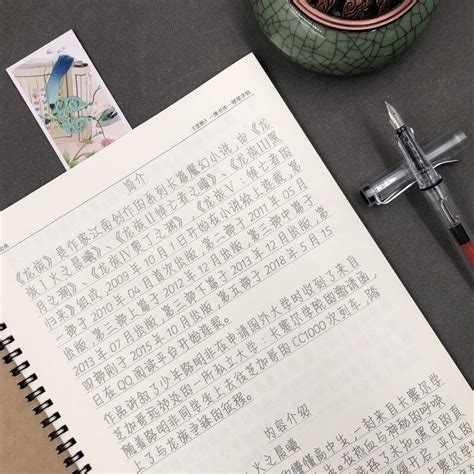 《龙族》一情书体一硬笔字帖
简介
《龙族》是作家江南创作的系列长篇魔幻小说,由《龙
族Ⅰ火之晨曦》、《龙族Ⅱ悼亡者之瞳》、《龙族Ⅲ黑
月之潮》、《龙族Ⅳ奥丁之渊》、《龙族Ⅴ·悼亡者的
归来》组成,2009年10月1日开始在小说绘上连载,第
一部于2010年04月首次出版,第二部于2011年05月
出版,第三部上篇于2012年12月出版,第三部中篇于
2013年07月出版,第三部下篇于2013年12月出版,第
四部则于2015年10月出版,第五部于2018年5月15
日在QQ阅读平台开始连载。
作品讲叙了少年路明非在申请国外大学时收到了来自
芝加哥远郊处的一所私立大学:卡塞尔学院的邀请函,
随着路明非同学生上去往芝加哥的CC1000次列车,踏
上了与龙族争锋的征程。
内容介绍
火之晨曦